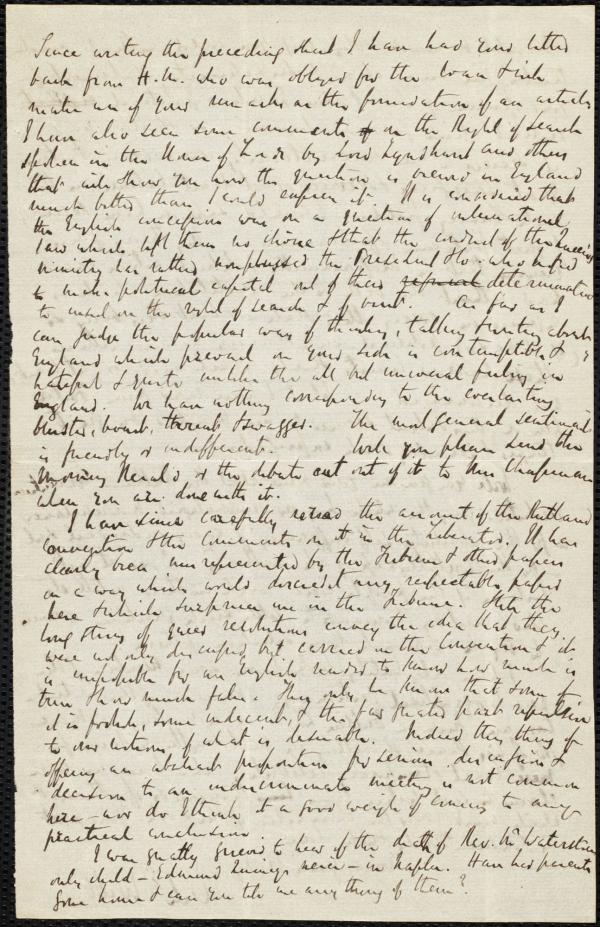 Since writing the preceding sheet I have had your letter
back from H.M. who was obliged for the loan & will
make use of your remarks as the foundation of an article
I have also seen some comments on the Right of Search
spoken in the House of Lords by Lord Lyndhurst and others
that will show you how the question is viewed in England
much better than I could express it. It is considered that
the English concession was on a question of international
law which left them no choice & that the conduct of the
ministry has rather nonplussed the President &c. who hoped
to make political capital out of their refusal determination
to insist on the right of search & of visit. As far as I
can judge the popular way of thinking, talking & writing about
England which prevail on your side is contemptible &
hateful & quite unlike the all but universal feeling in
England. We have nothing corresponding to the everlasting
bluster, boast, threat & swagger. The most general sentiment
is friendly or indifferent. Will you please send the
Morning Herald or the debate cut out of it to Mrs Chapman
when you are done with it.
I have since carefully read the account of the Rutland
Convention & the comments on it in the Liberator. It has
clearly been misrepresented by the Tribune & other papers
in a way which would discredit any respectable paper
here & which surprises me in the Tribune. the
long string of queer resolutions convey the idea that they
were not only discussed, but carried in the Convention & it
is impossible for an English reader to know how much is
true & how much false. They only know that some of
it is foolish, some indecent, & the far greater part repulsive
to our notions of what is desirable. Indeed the thing of
offering an abstract proposition for serious discussion &
decision to an indiscriminate meeting is not common
here – nor do I think it a good way of coming to any
practical conclusion.
I was greatly grieved to hear of the death of Rev. Mr Waterston's
only child – Edmund Quincy's niece – in Naples. Have her parents
gone home & can you tell me any thing of them?